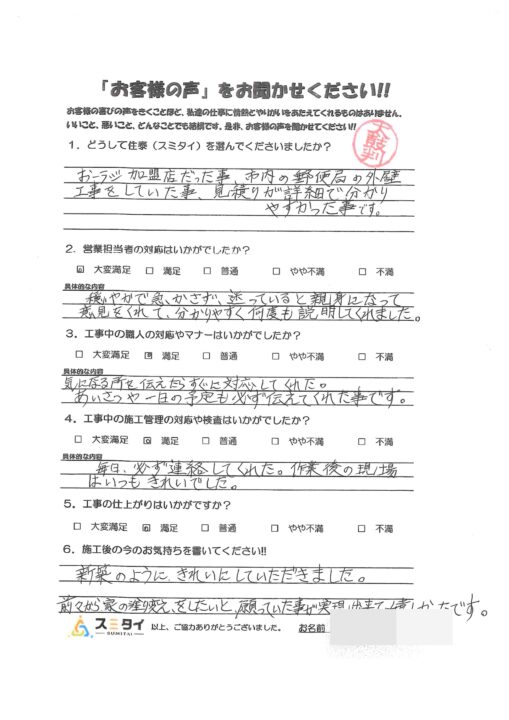 「お客様の声」をお聞かせください!!
お客様の喜びの声をきくことほど、私達の仕事に情熱とやりがいをあたえてくれるものはありません。
いいこと、悪いこと、どんなことでも結構です。是非、お客様の声を聞かせてください!!
太鼓判
1．どうして住泰（スミタイ）を選んでくださいましたか？
おーラジ加盟店だった事、市内の郵便局の外壁
工事をしていた事、見積りが詳細で分かり
やすかった事です。
2．営業担当者の対応はいかがでしたか？
☑ 大変満足 □ 満足 □ 普通 □ やや不満 □ 不満
具体的な内容
穏やかで急かさず、迷っていると親身になって
意見をくれて、分かりやすく何度も説明してくれました。
3．工事中の職人の対応やマナーはいかがでしたか？
□ 大変満足 ☑ 満足 □ 普通 □ やや不満 □ 不満
具体的な内容
気になる所を伝えたらすぐに対応してくれた。
あいさつや一日の予定も必ず伝えてくれた事です。
4．工事中の施工管理の対応や検査はいかがでしたか？
□ 大変満足 ☑ 満足 □ 普通 □ やや不満 □ 不満
具体的な内容
毎日、必ず連絡してくれた。作業後の現場
はいつもきれいでした。
5．工事の仕上がりはいかがですか？
□ 大変満足 ☑ 満足 □ 普通 □ やや不満 □ 不満
6．施工後の今のお気持ちを書いてください!!
新築のように、きれいにしていただきました。
前々から家の塗り変えをしたいと、願っていた事が実現出来て嬉しかったです。
スミタイ 以上、ご協力ありがとうございました。 お名前
SUMITAI